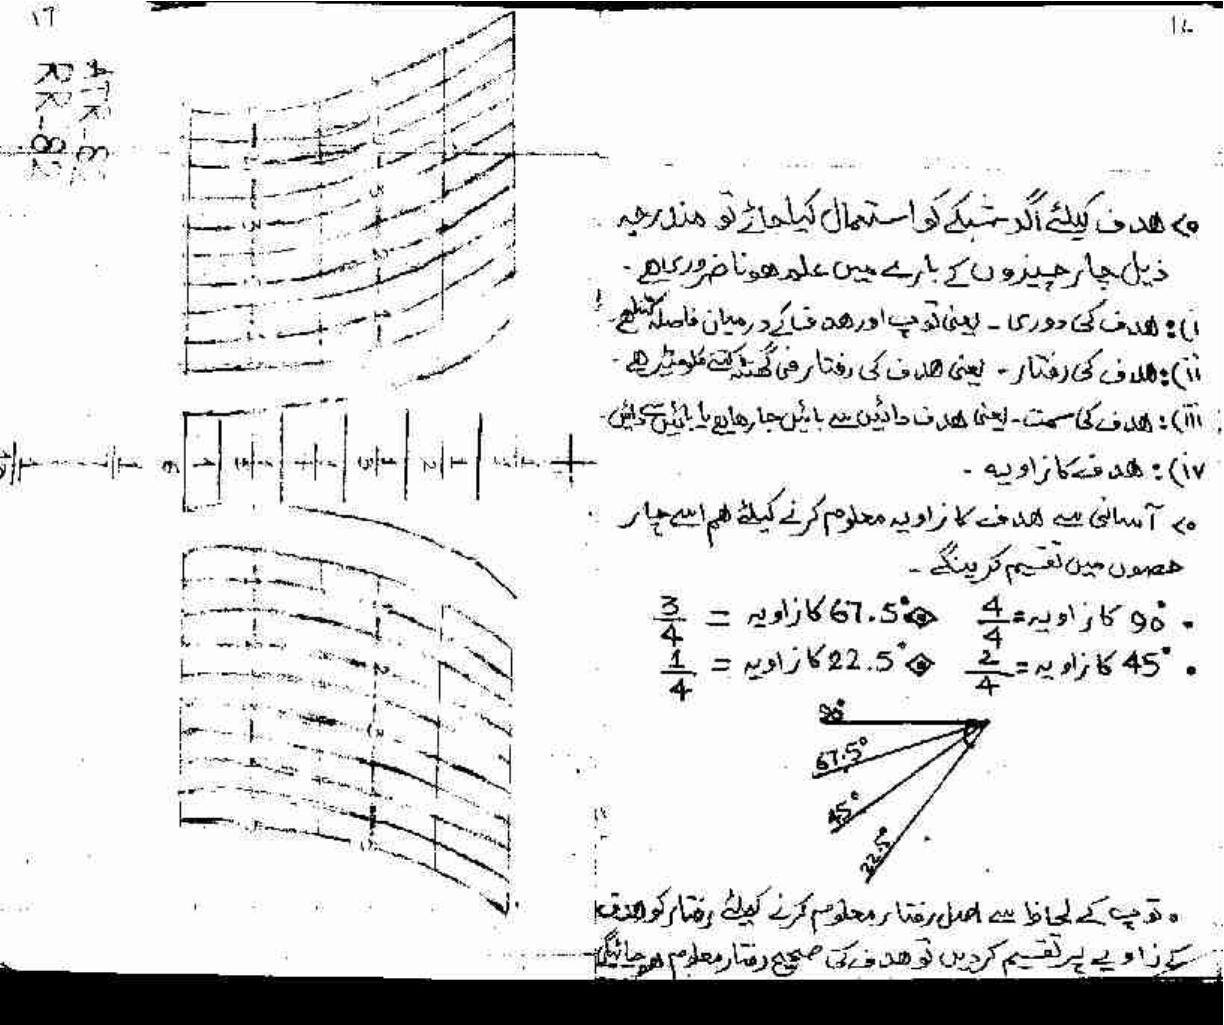 ١٦
ATR-82
RR-82
١٧
ھدف کیلئے اگر شبکے کو استعمال کیا جائے تو مندرجہ
ذیل چار چیزوں کے بارے میں علم ھونا ضروری ھے -
(i): ھدف کی دوری - یعنی توپ اور ھدف کے درمیان فاصلہ کتنا ھے -
(ii): ھدف کی رفتار - یعنی ھدف کی رفتار فی گھنٹہ کتنے کلومیٹر ھے -
(iii): ھدف کی سمت - یعنی ھدف دائیں سے بائیں جا رھا ھے یا بائیں سے دائیں -
(iv): ھدف کا زاویہ -
آسانی سے ھدف کا زاویہ معلوم کرنے کیلئے ھم اسے چار
حصوں میں تقسیم کرینگے -
• 90° کا زاویہ = 4/4 67.5° کا زاویہ = 3/4
• 45° کا زاویہ = 2/4 22.5° کا زاویہ = 1/4
90°
67.5°
45°
22.5°
• توپ کے لحاظ سے اصل رفتار معلوم کرنے کیلئے رفتار کو ھدف
کے زاویے پر تقسیم کردیں تو ھدف کی صحیح رفتار معلوم ھو جائیگی